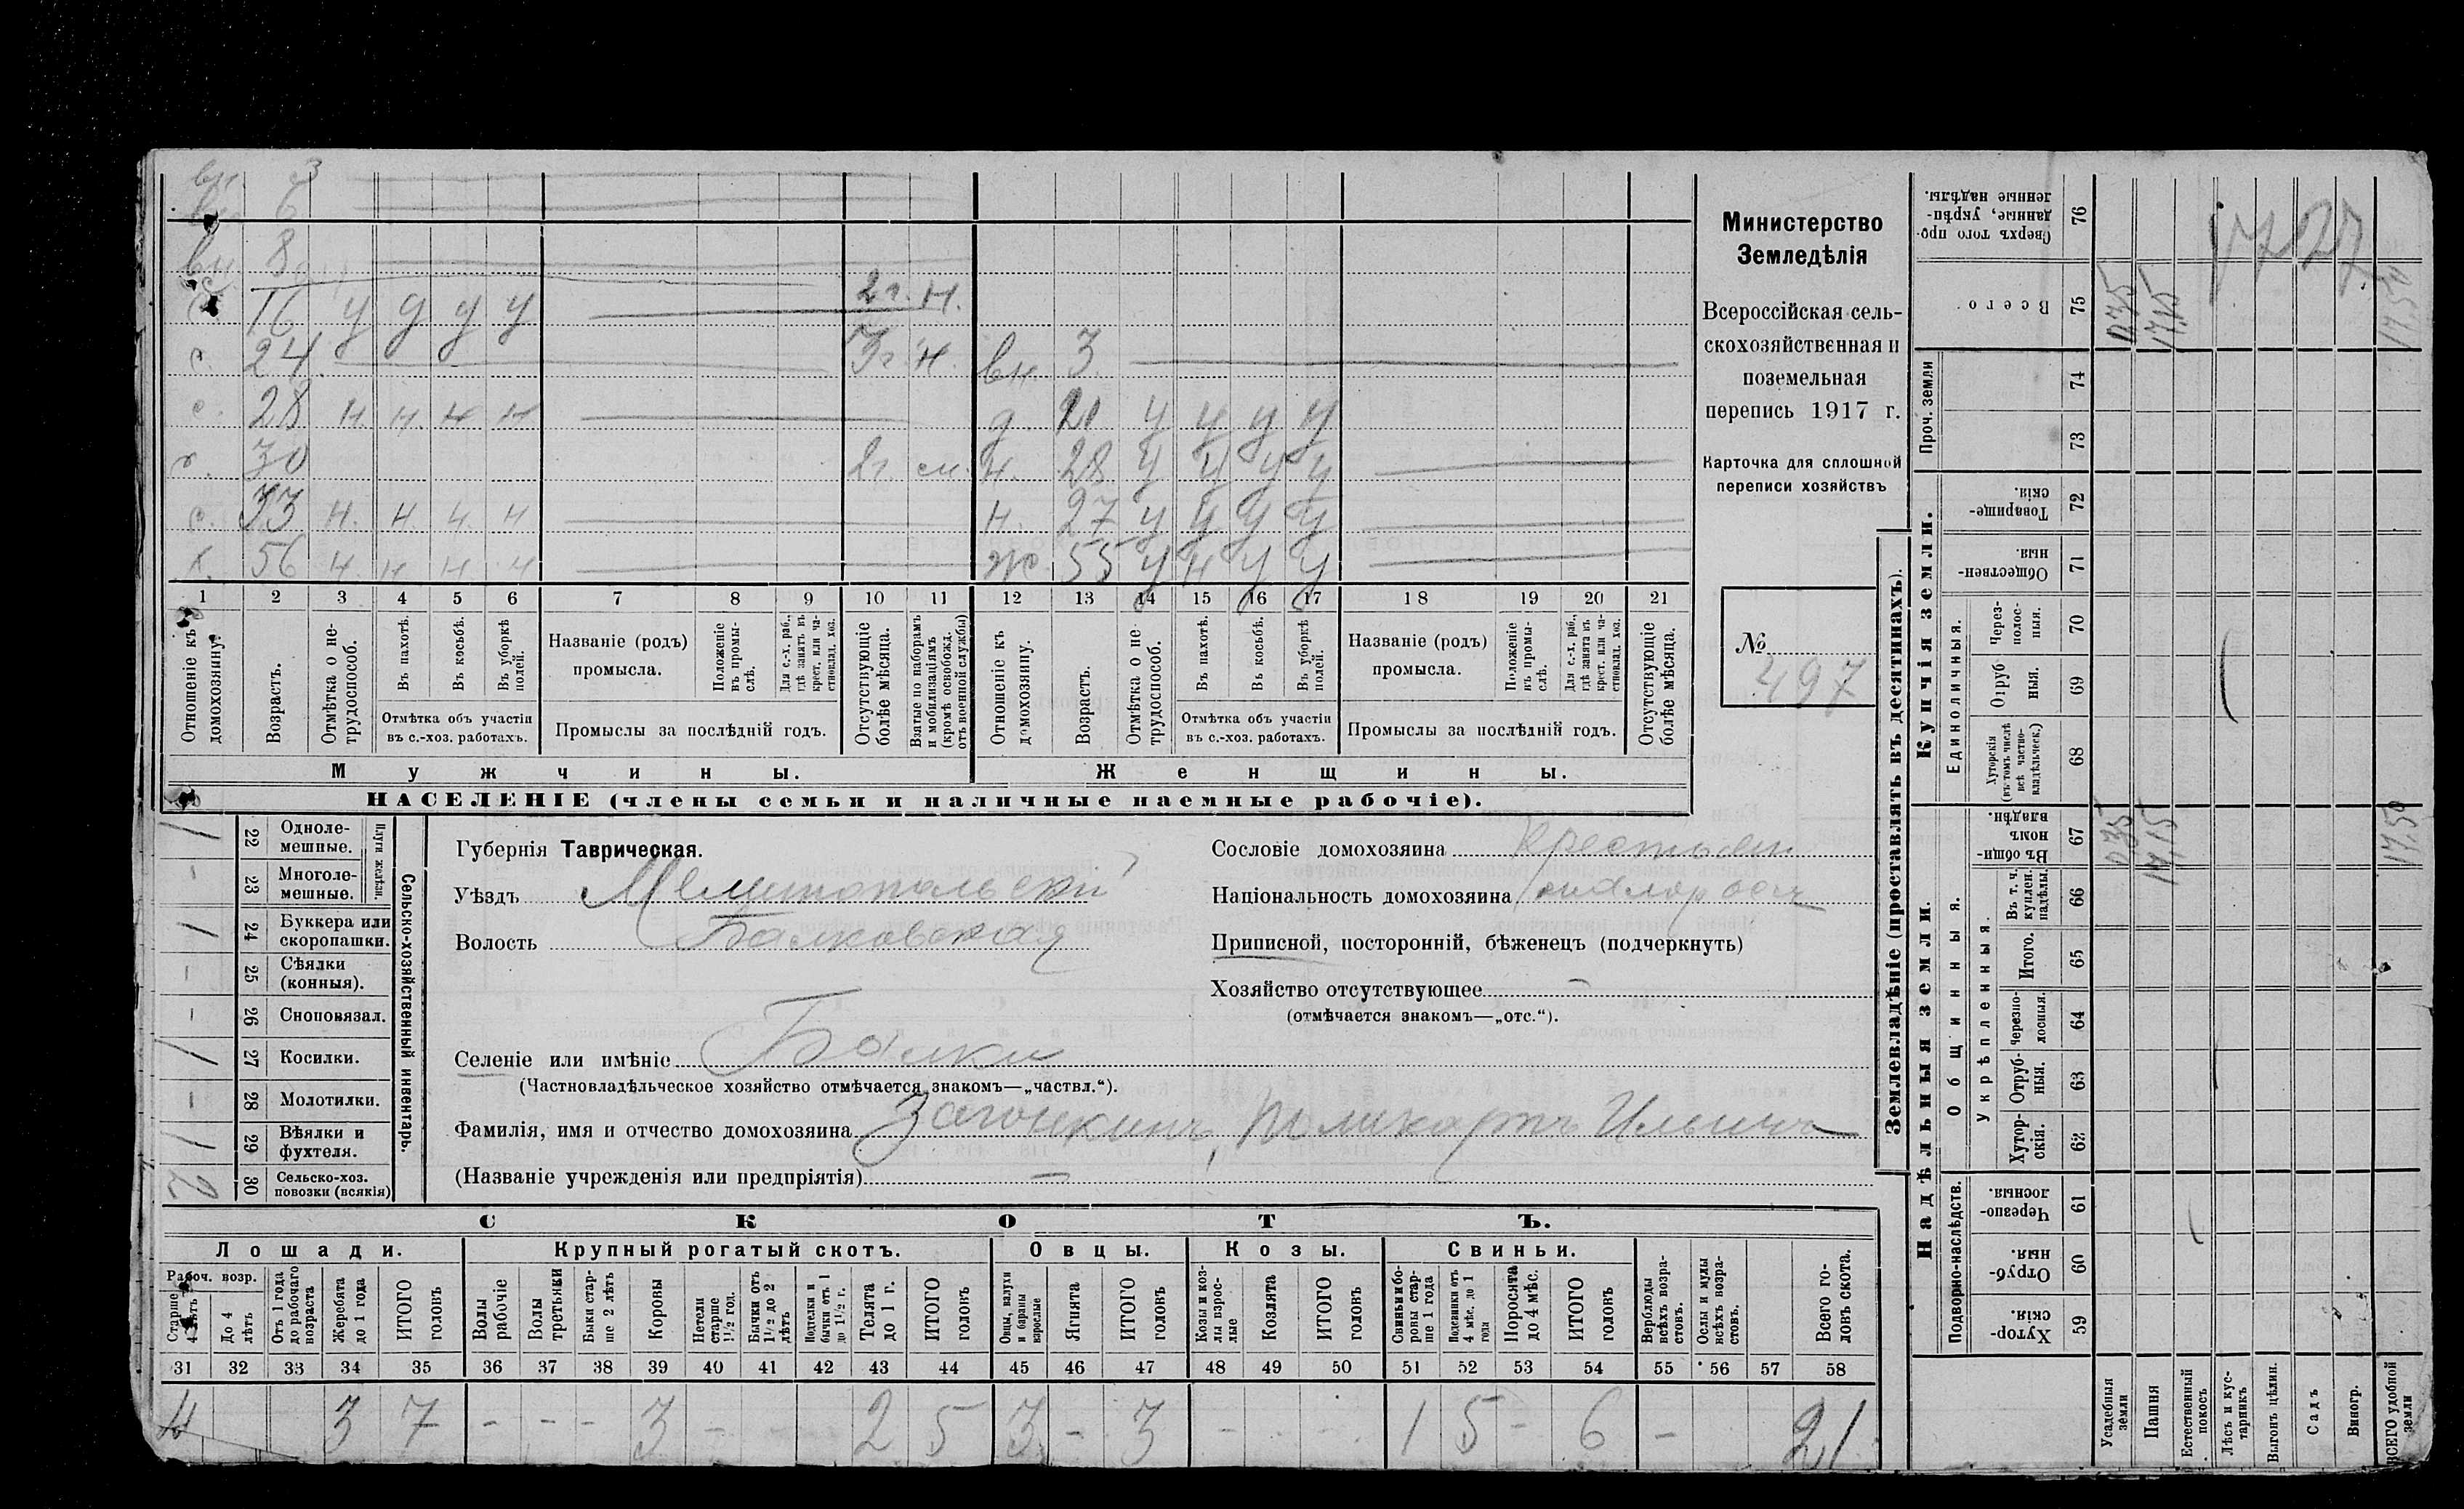 вн. 3
вн. 6
вн 8
с. 16 у у у у 2г. н.
с. 24 3г. н. вн. 3
с. 28 н. н. н. н д. 21 у у у у
с. 30 2г. см. н. 28 у у у у
с. 33 н. н н. н н. 27 у у у у
х. 56 н. н н. н ж. 55 у н у у
1 2 3 4 5 6 7 8 9 10 11 12 13 14 15 16 17 18 19 20 21
Отношеніе къ домохозяину.
Возрастъ.
Отмѣтка о нетрудоспособ.
Въ пахотѣ.
Въ косьбѣ.
Въ уборкѣ полей.
Отмѣтка объ участіи въ с.-хоз. работахъ.
Названіе (родъ) промысла.
Положеніе въ промыслѣ.
Для с.-х. раб., гдѣ занятъ въ крест. или частновлад. хоз.
Промыслы за послѣдній годъ.
Отсутствующіе болѣе мѣсяца.
Взятые по наборамъ и мобилизаціямъ (кромѣ освобожд. отъ военной службы)
Отношеніе къ домохозяину.
Возрастъ.
Отмѣтка о нетрудоспособ.
Въ пахотѣ.
Въ косьбѣ.
Въ уборкѣ полей.
Отмѣтка объ участіи въ с.-хоз. работахъ.
Названіе (родъ) промысла.
Положеніе въ промыслѣ.
Для с.-х. раб., гдѣ занятъ въ крест. или частновлад. хоз.
Промыслы за послѣдній годъ.
Отсутствующіе болѣе мѣсяца.
Мужчины.
Женщины.
НАСЕЛЕНІЕ (члены семьи и наличные наемные рабочіе).
Министерство
Земледѣлія
Всероссійская сель-
скохозяйственная и
поземельная
перепись 1917 г.
Карточка для сплошной
переписи хозяйствъ
№
497
Сельско-хозяйственный инвентарь.
Плуги желѣзн.
1 22 Одноле-мешные.
- 23 Многоле-мешные.
1 24 Буккера или скоропашки.
- 25 Сѣялки (конныя).
- 26 Сноповязал.
1 27 Косилки.
- 28 Молотилки.
1 29 Вѣялки и фухтеля.
2 30 Сельско-хоз. повозки (всякія)
Губернія Таврическая.
Уѣздъ Мелитопольскій
Волость Балковская
Селеніе или имѣніе Балки
(Частновладѣльческое хозяйство отмѣчается знакомъ—„частвл.“).
Фамилія, имя и отчество домохозяина Загонкинъ, Поликарпъ Ильичъ
(Названіе учрежденія или предпріятія) —
Сословіе домохозяина крестьян
Національность домохозяина малоросъ
Приписной, посторонній, бѣженецъ (подчеркнуть)
Хозяйство отсутствующее –
(отмѣчается знакомъ—„отс.“).
СКОТЪ.
Лошади. Крупный рогатый скотъ. Овцы. Козы. Свиньи.
Рабоч. возр.
Старше 4 лѣтъ
До 4 лѣтъ
Отъ 1 года до рабочаго возраста
Жеребята до 1 года
ИТОГО головъ
Волы рабочіе
Волы третьяки
Быки старше 2 лѣтъ
Коровы
Нетели старше 1½ год.
Бычки отъ 1½ до 2 лѣтъ
Подтелки и бычки отъ 1 до 1½ г.
Телята до 1 г.
ИТОГО головъ
Овцы, валухи и бараны взрослые
Ягнята
ИТОГО головъ
Козы и козлы взрослые
Козлята
ИТОГО головъ
Свиньи и боровы старше 1 года
Подсвинки отъ 4 мѣс. до 1 года
Поросята до 4 мѣс.
ИТОГО головъ
Верблюды всѣхъ возрастовъ.
Ослы и мулы всѣхъ возрастовъ.
Всего головъ скота.
31 32 33 34 35 36 37 38 39 40 41 42 43 44 45 46 47 48 49 50 51 52 53 54 55 56 57 58
4 3 7 - - - 3 - 2 5 3 - 3 - - 1 5 - 6 - 21
Землевладѣніе (проставлять въ десятинахъ).
Надѣльныя земли.
Купчія земли.
Проч. земли
Подворно-наслѣдств.
Общинныя.
Укрѣпленныя.
Единоличныя.
Хуторскія. 59
Отрубныя. 60
Черезполосныя. 61
Хуторскія. 62
Отрубныя. 63
Черезполосныя. 64
Итого. 65
Въ т. ч. куплен. надѣлы. 66
Въ общинномъ владѣн. 67
Хуторскія (въ томъ числѣ всѣ частновладѣльческ.) 68
Отрубныя. 69
Черезполосныя. 70
Общественныя. 71
Товарищескія. 72
73
74
Всего. 75
Сверхъ того проданные, укрѣпленные надѣлы. 76
Усадебныя земли 0.35 0.35
Пашня 17.15 17.15
Естественный покосъ
Лѣсъ и кустарникъ
Выгонъ цѣлин.
Садъ
Виногр.
ВСЕГО удобной земли 17,50 17,50
1727